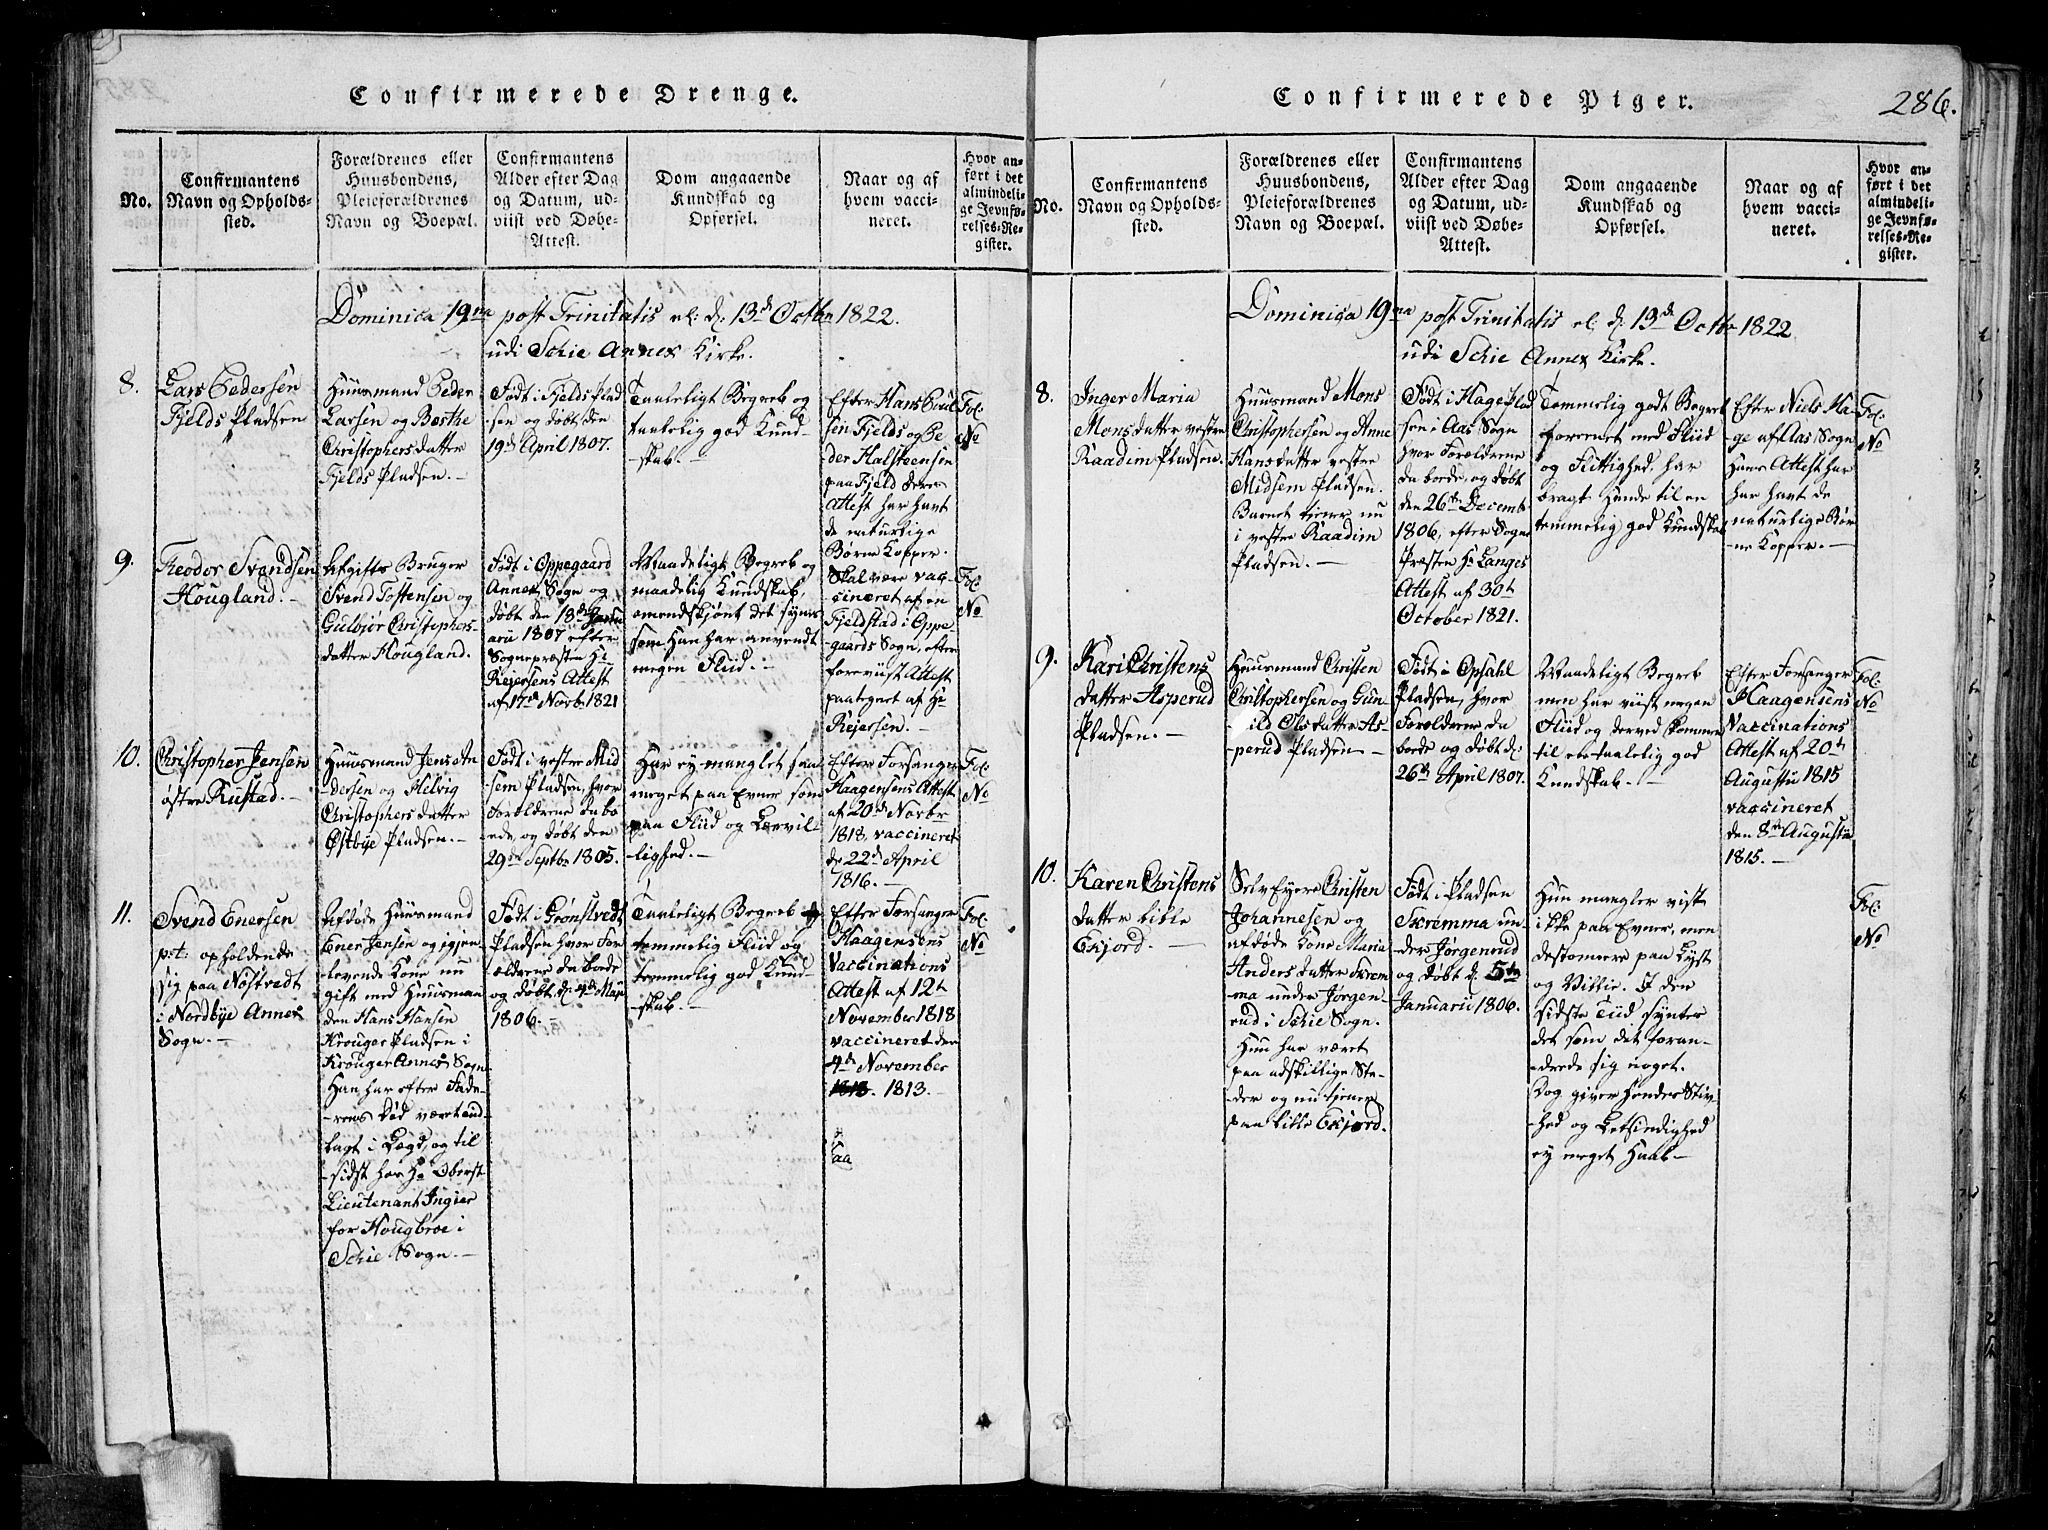 Confirmerede Drenge.
No.
Confirmantens
Navn og Opholds-
sted.
Forældrenes eller
Huusbondens,
Pleieforældrenes
Navn og Boepæl.
Confirmantens
Alder efter Dag
og Datum, ud-
viist ved Døbe-
Attest.
Dom angaaende
Kundskab og
Opførsel.
Naar og af
hvem vacci-
neret.
Hvor an-
ført i det
almindeli-
ge Jevnfø-
relses-Re-
gister.
Dominica 19na post Trinitatis el. d. 13de Octbr 1822.
udi Schie Annex Kirke.
8.
Lars Pedersen
Fjelds Pladsen
Huusmand Peder
Larsen og Berthe
Christophersdatter
Fjelds Pladsen. –
Født i Fjelds Plad
-sen og døbt den
19de April 1807.
Taaleligt Begreb og
taalelig god Kund-
-skab. –
Efter Hans Poul
sen Fjelds og Pe
der Halsteensen
paa Fjeld deres
Attest har havt
de naturlige
Børne Kopper.
Fol.
No
9.
Theodor Svendsen
Hougland. –
Afgifts Bruger
Svend Tostensen og
Gulbjør Christophers-
datter Hougland.
Født i Oppegaard
Annex Sogn og
døbt den 18de Janu
arii 1807 efter
Sognepræsten Hr
Reiersens Attest
af 17de Novbr 1821
Maadeligt Begreb og
maadelig Kundskab,
omendskjønt det synes
som Han har anvendt
megen Fliid. –
Skal være vac-
cineret af en
Fjeldstad i Oppe-
gaards Sogn, efter
foreviist Attest
paategnet af Hr
Reiersen. –
Fol.
No
10.
Christopher Jensen
østre Rustad. –
Huusmand Jens An
-dersen og Helvig
Christophersdatter
Østbye Pladsen. –
Født i vestre Mid
sem Pladsen, hvor
Forældrene da bo
ede, og døbt den
29de Septbr 1805.
Har ey manglet saa
meget paa Evner som
paa Fliid og Lærvil
lighed. –
Efter Forsanger
Haagensens Attest
af 20de Novbr
1818, vaccineret
de 22de April
1816. –
Fol.
No
11.
Svend Enersen
p: t: opholdende
sig paa Nøstvedt
i Nordbye Annex
Sogn. –
Afdøde Huusmand
Ener Jensen og igjen-
levende Kone nu
gift med Huusman
den Hans Hansen
Krouger Pladsen i
Krouger Annex Sogn
Han har efter Fade-
-rens Død været ud-
lagt i Lægd, og til
-sidst hos Hr Oberst
Lieutenant Ingier
for Hougbroe i
Schie Sogn. –
Født i Grønstvedt
Pladsen hvor For
ældrene da boede
og døbt d. 4de Maji
1806. –
Taaleligt Begreb
temmelig Fliid og
temmelig god Kund-
-skab. –
Efter Forsanger
Haagensens
Vaccinations
Attest af 12te
November 1818
vaccineret den
4de November
1813. –
Fol.
No
Confirmerede Piger.
286.
No.
Confirmantens
Navn og Opholds-
sted.
Forældrenes eller
Huusbondens,
Pleieforældrenes
Navn og Boepæl.
Confirmantens
Alder efter Dag
og Datum, ud-
viist ved Døbe-
Attest.
Dom angaaende
Kundskab og
Opførsel.
Naar og af
hvem vacci-
neret.
Hvor an-
ført i det
almindeli-
ge Jevnfø-
relses-Re-
gister.
Dominica 19na post Trinitatis el. d. 13de Octbr 1822
udi Schie Annex Kirke.
8.
Inger Maria
Monsdatter vestre
Raadim Pladsen.
Huusmand Mons
Christophersen og Anne
Hansdatter vestre
Midsem Pladsen.
Barnet tjener nu
i vestre Raadim
Pladsen. –
Født i Hage Plad
sen i Aas Sogn
hvor Forældrene
da boede, og døbt
den 26de Decemb.
1806, efter Sogne
Præsten Hr Langes
Attest af 30te
October 1821.
Temmelig godt Begreb
foreenet med Fliid
og Flittighed, har
bragt Hende til en
temmelig god Kundskab
Efter Niels Ha-
ge af Aas Sogn
Hans Attest har
har havt de
naturlige Bør
ne Kopper. –
Fol.
No
9.
Kari Christens
datter Asperud
Pladsen. –
Huusmand Christen
Christophersen og Gun
-ild Olsdatter As-
-perud Pladsen –
Født i Opsahl
Pladsen, hvor
Forældrene da
boede og døbt d.
26de April 1807.
Maadeligt Begreb
men har viist megen
Fliid og derved kommen
til en taalelig god
Kundskab. –
Efter Forsanger
Haagensens
Vaccinations
Attest af 20te
Augustii 1815
vaccineret
den 8de Augustii
1815. –
Fol.
No
10.
Karen Christens
datter lille
Ekjord. –
Selv Eyere Christen
Johannesen og
afdøde Kone Maria
Andersdatter Skrem
-ma under Jørgen-
rud i Schie Sogn.
Hun har været
paa adskillige Ste-
-der og nu tjener
paa lille Ekjord.
Født i Pladsen
Skremma un-
der Jørgenrud
og døbt d. 5te
Januarii 1806.
Hun mangler vist
ikke paa Evner, men
destomere paa Lyst
og Villie. I den
sidste Tiid synter
det som det foran-
-drede sig noget.
Dog giver Hendes Stiv
-hed og Letsindighed
ey meget Haab –
Fol.
No